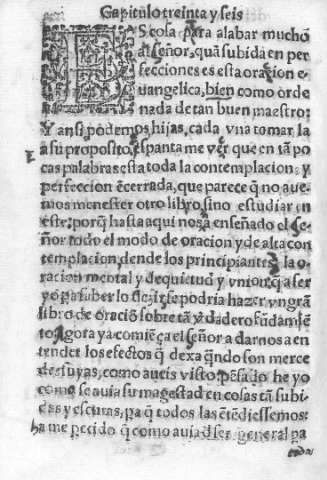 Capitulo treinta y seis
S cosa para alabar mucho
al señor, quã subida en per
fecciones es esta oraçion e
uangelica, bien como orde
nada de tan buen maestro:
Y ansi podemos hijas, cada vna tomarla
a su proposito, espanta me ver que en tã po
cas palabras esta toda la contemplacion y
perfeccion ẽcerrada, que parece q̃ no aue-
mos menester otro libro, sino estudiar en
este: porq̃ hasta aqui nos a enseñado el se-
ñor todo el modo de oracion y de alta con
templacion, dende los principiantes a la o-
racion mental y de quietud y vnion: q̃ a ser
yo para saber lo dezir, se podria hazer vn grã
libro de oraciõ sobre tã ṽdadero fũdamiẽ
to. Agora ya comiẽça el señor a darnos a en
tender los efectos q̃ dexa q̃ndo son merce
des suyas, como aueis visto. Pẽsado he yo
como se auia su magestad en cosas tã subi-
das y escuras, pa q̃ todos las ẽtẽdiessemos:
ha me pecido q̃ como auia d̃ ser general pa